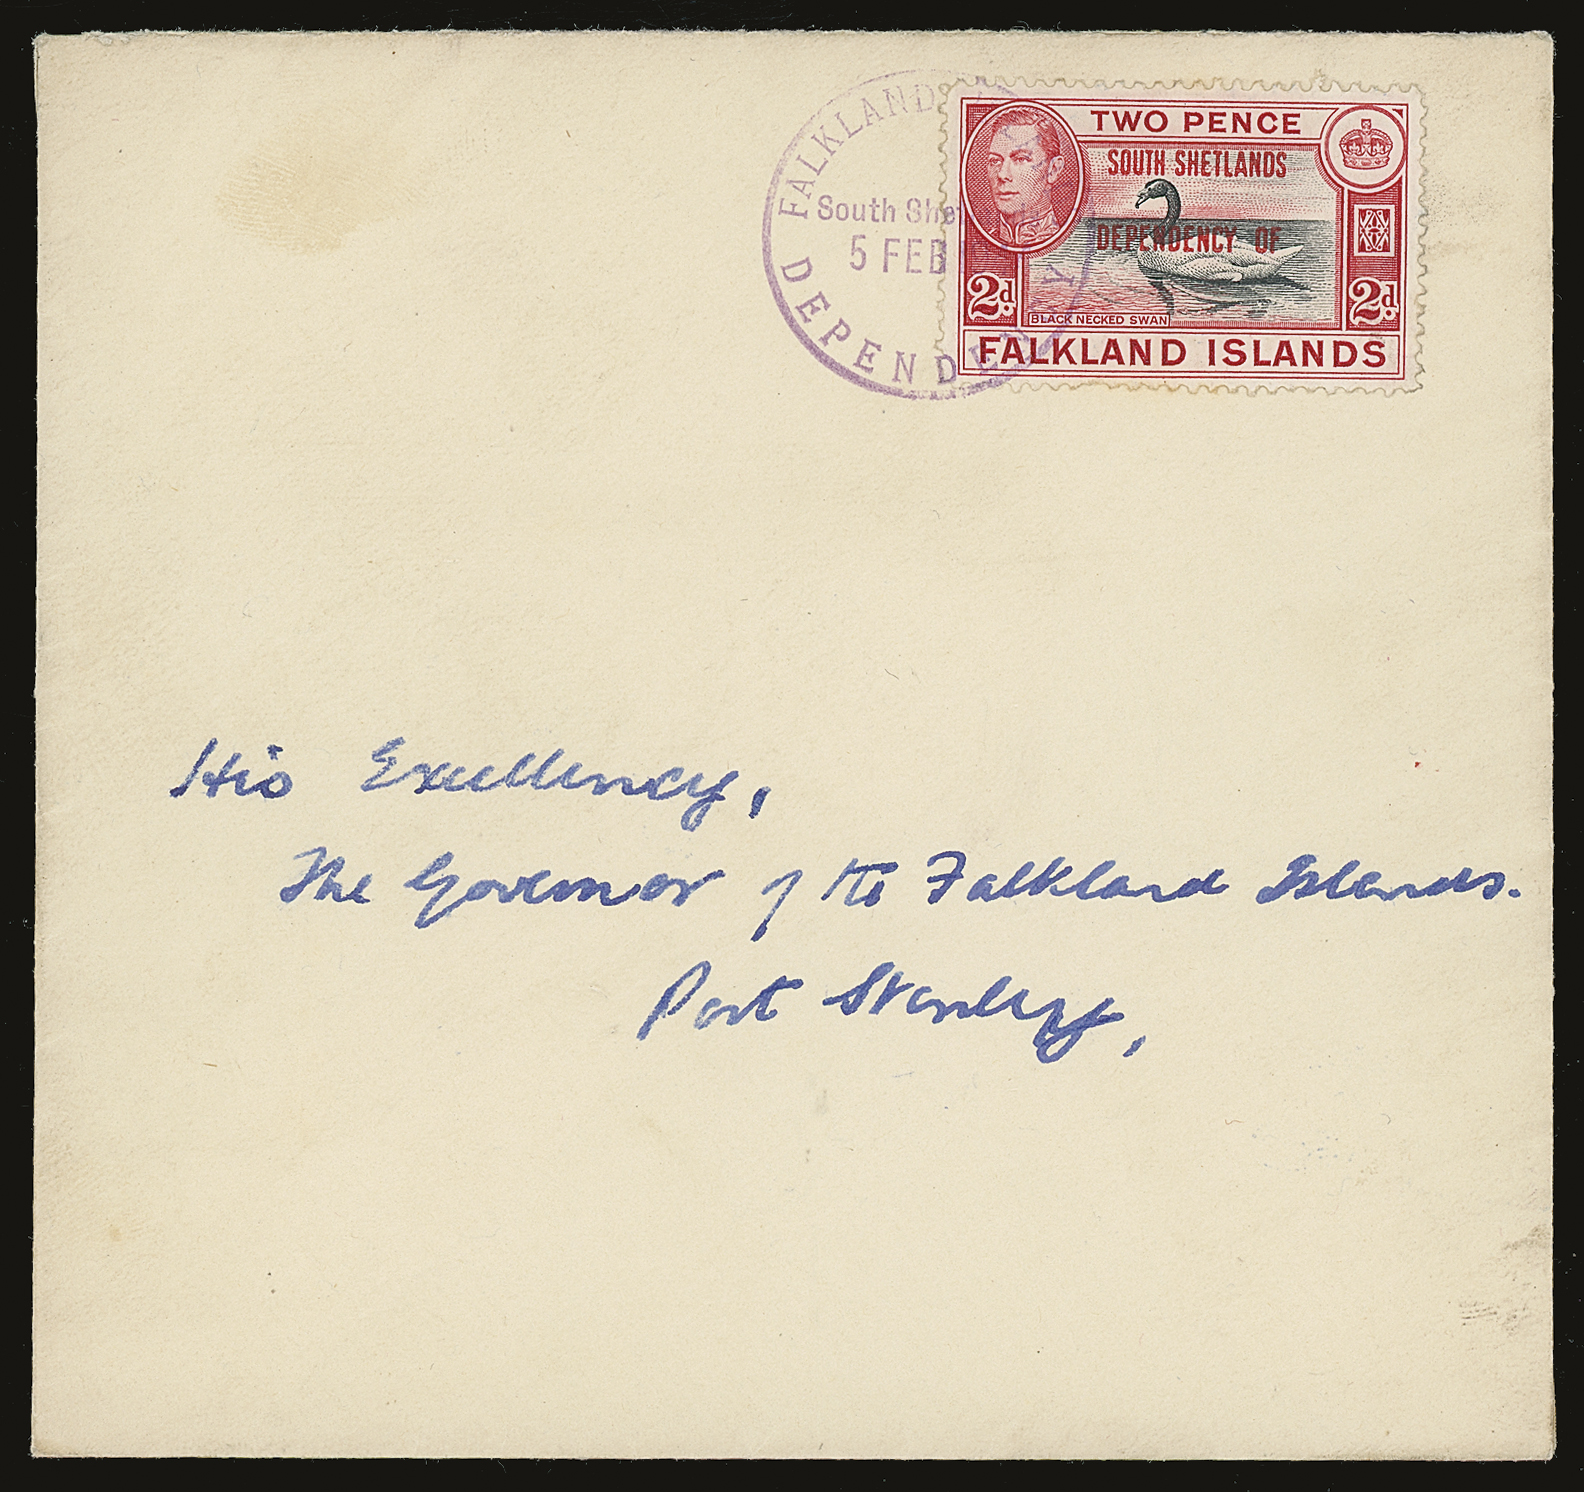 FALKLAND
South She
5 FEB
DEPENDEN Y
TWO PENCE
SOUTH SHETLANDS
DEPENDENCY OF
2d. 2d.
BLACK NECKED SWAN
FALKLAND ISLANDS
His Excellency,
The Governor of the Falkland Islands.
Port Stanley,